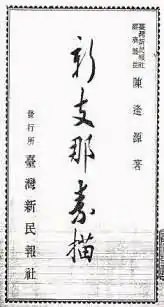 臺灣新民報社
經濟部長
陳逢源著
新支那素描
發行所 臺灣新民報社